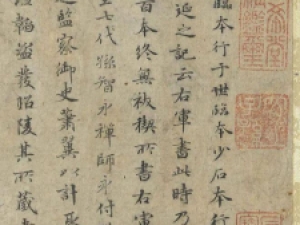 臨本行于世臨本少石本行
延之記云右軍書此時乃
百本終無祓禊所書右軍
七代孫智永禪師永付
遣監察御史蕭翼以計取
韜盜發昭陵其所藏